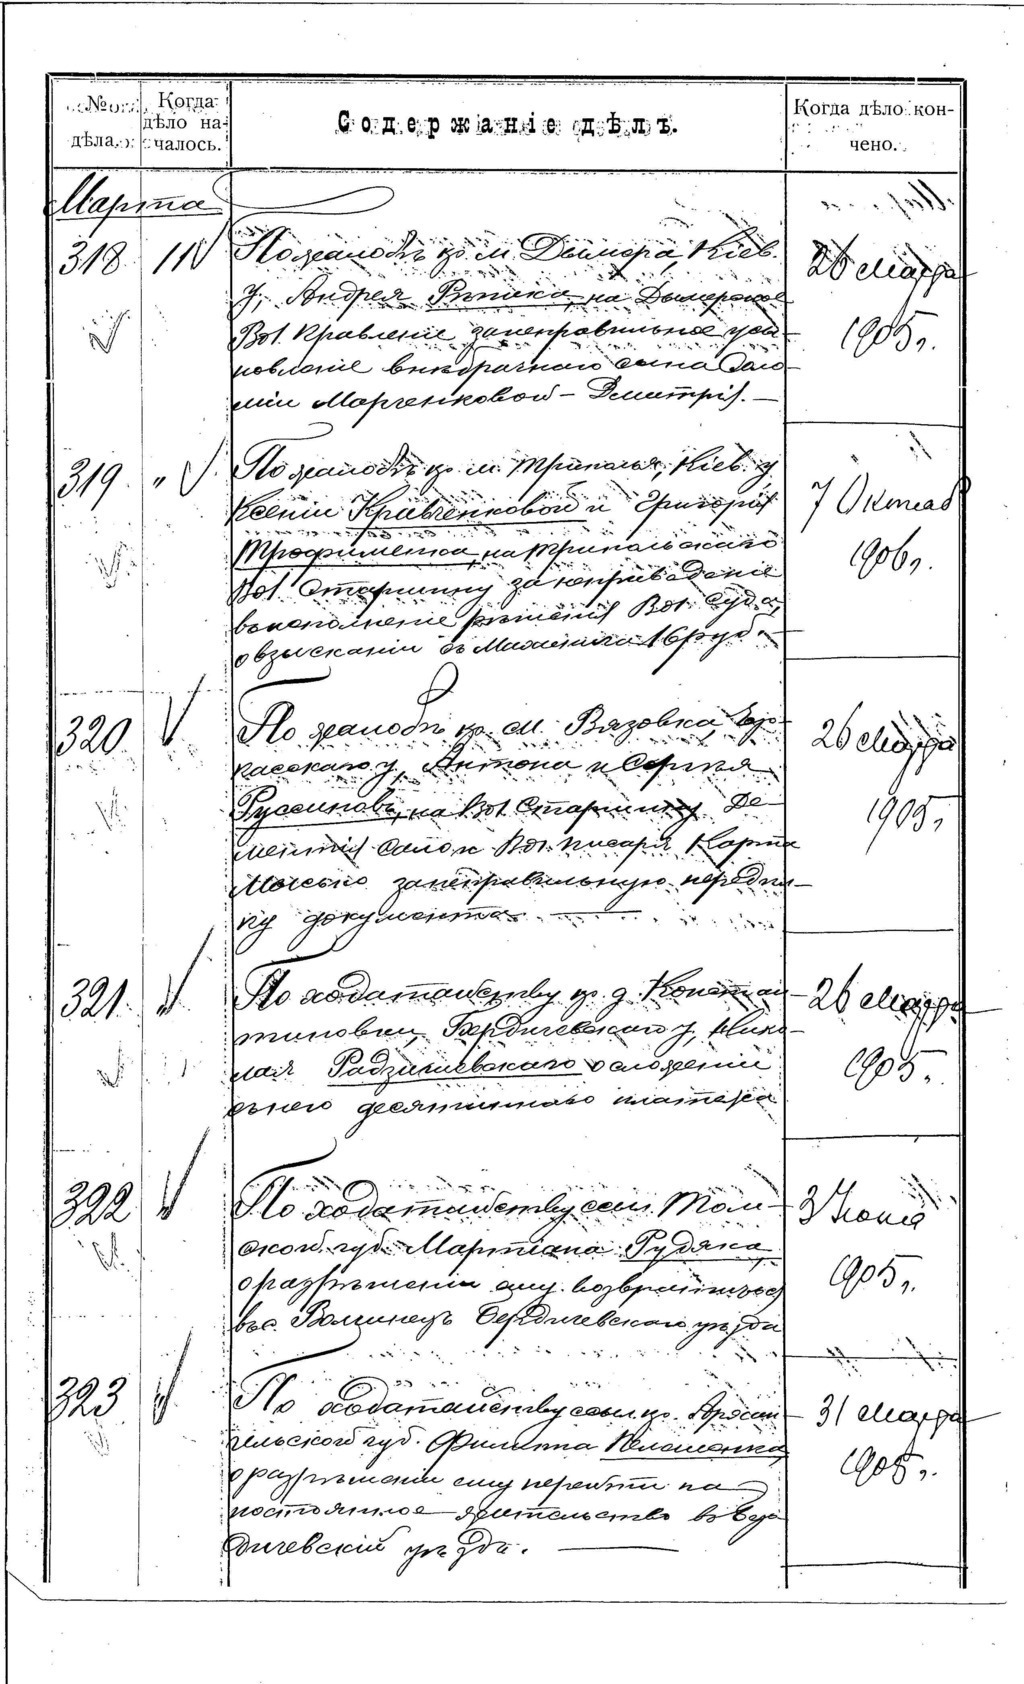 № дѣла.
Когда дѣло началось.
Содержаніе дѣлъ.
Когда дѣло кончено.
Марта
318 11 По жалобѣ кр. м. Дымера, Кіев. 26 Марта
у, Андрея Рыпика, на Дымерское
Вол. Правленіе за неправильное усы- 1905 г.
новленіе внѣбрачнаго сына
Марченковой - Дмитрія. —
319 " По жалобѣ кр. м. Триполья, Кіев. у
Ксеніи Кравченковой и Григорія 7 Октяб
Трофименка, на Трипольскаго 1906 г.
Вол. Старшину за неприведеніе
въ исполненіе рѣшенія Вол. Суда,
о взысканіи 16 руб.
320 По жалобѣ кр. м. Вязовка, Чер- 26 Марта
касскаго у, Антона и Сергѣя
Руссиновъ, на Вол Старшину Де- 1905 г
ментія и Вол. писаря Карпа
за неправильную переда-
чу документа. —
321. По ходатайству кр. д. Констан- 26 Марта
тиновки, Бердичевскаго у, Нико-
лая Радзишевскаго о сложеніи 1905 г.
съ него десятиннаго платежа
322 По ходатайству ссыл. Том- 3 Іюня
ской губ. Мартіана Рудяка,
о разрѣшеніи ему возвратиться 1905 г.
въ с. Волчинецъ Бердичевскаго уѣзда
323 По ходатайству ссыл. кр. Архан- 31 Марта
гельской губ. Филиппа
о разрѣшеніи ему перейти на 1905 г.
постоянное жительство въ Бер-
дичевскій уѣздъ. —